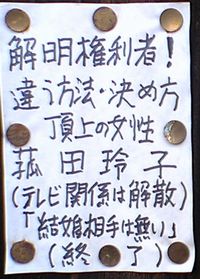 解明権利者!
違う方法・決め方
頂上の女性
菰田玲子
(テレビ関係は解散)
「結婚相手は無い」
(終了)